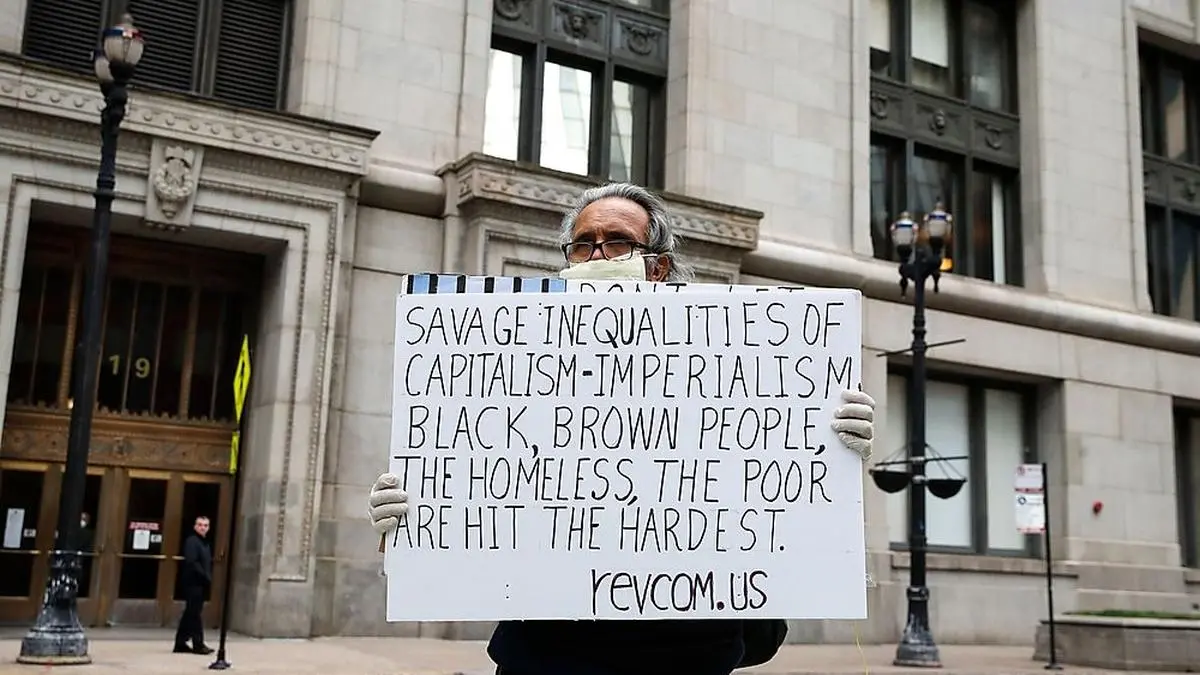 SAVAGE INEQUALITIES OF
CAPITALISM-IMPERIALISM
BLACK, BROWN PEOPLE,
THE HOMELESS, THE POOR
ARE HIT THE HARDEST.
revcom.us
19